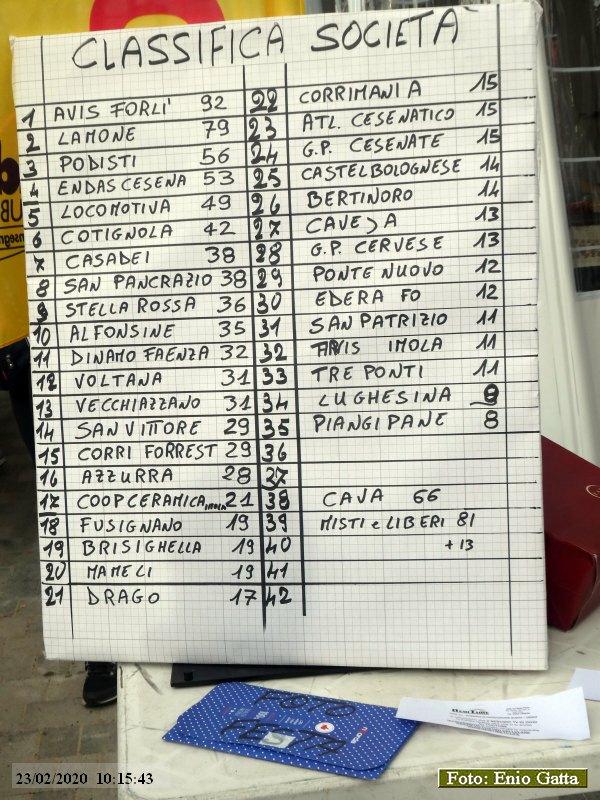 CLASSIFICA SOCIETÀ
1 AVIS FORLI' 92
2 LAMONE 79
3 PODISTI 56
4 ENDAS CESENA 53
5 LOCOMOTIVA 49
6 COTIGNOLA 42
7 CASADEI 38
8 SAN PANCRAZIO 38
9 STELLA ROSSA 36
10 ALFONSINE 35
11 DINAMO FAENZA 32
12 VOLTANA 31
13 VECCHIAZZANO 31
14 SAN VITTORE 29
15 CORRI FORREST 29
16 AZZURRA 28
17 COOPCERAMICA IMOLA 21
18 FUSIGNANO 19
19 BRISIGHELLA 19
20 MAMELI 19
21 DRAGO 17
22 CORRIMANIA 15
23 ATL. CESENATICO 15
24 G.P. CESENATE 15
25 CASTELBOLOGNESE 14
26 BERTINORO 14
27 CAVEJA 13
28 G.P. CERVESE 13
29 PONTE NUOVO 12
30 EDERA FO 12
31 SAN PATRIZIO 11
32 AVIS IMOLA 11
33 TRE PONTI 11
34 LUGHESINA 8
35 PIANGIPANE 8
36
37
38 CAVA 66
39 MISTI e LIBERI 81
40 +13
41
42
FOTO
FESTA
23/02/2020 10:15:43
Foto: Enio Gatta